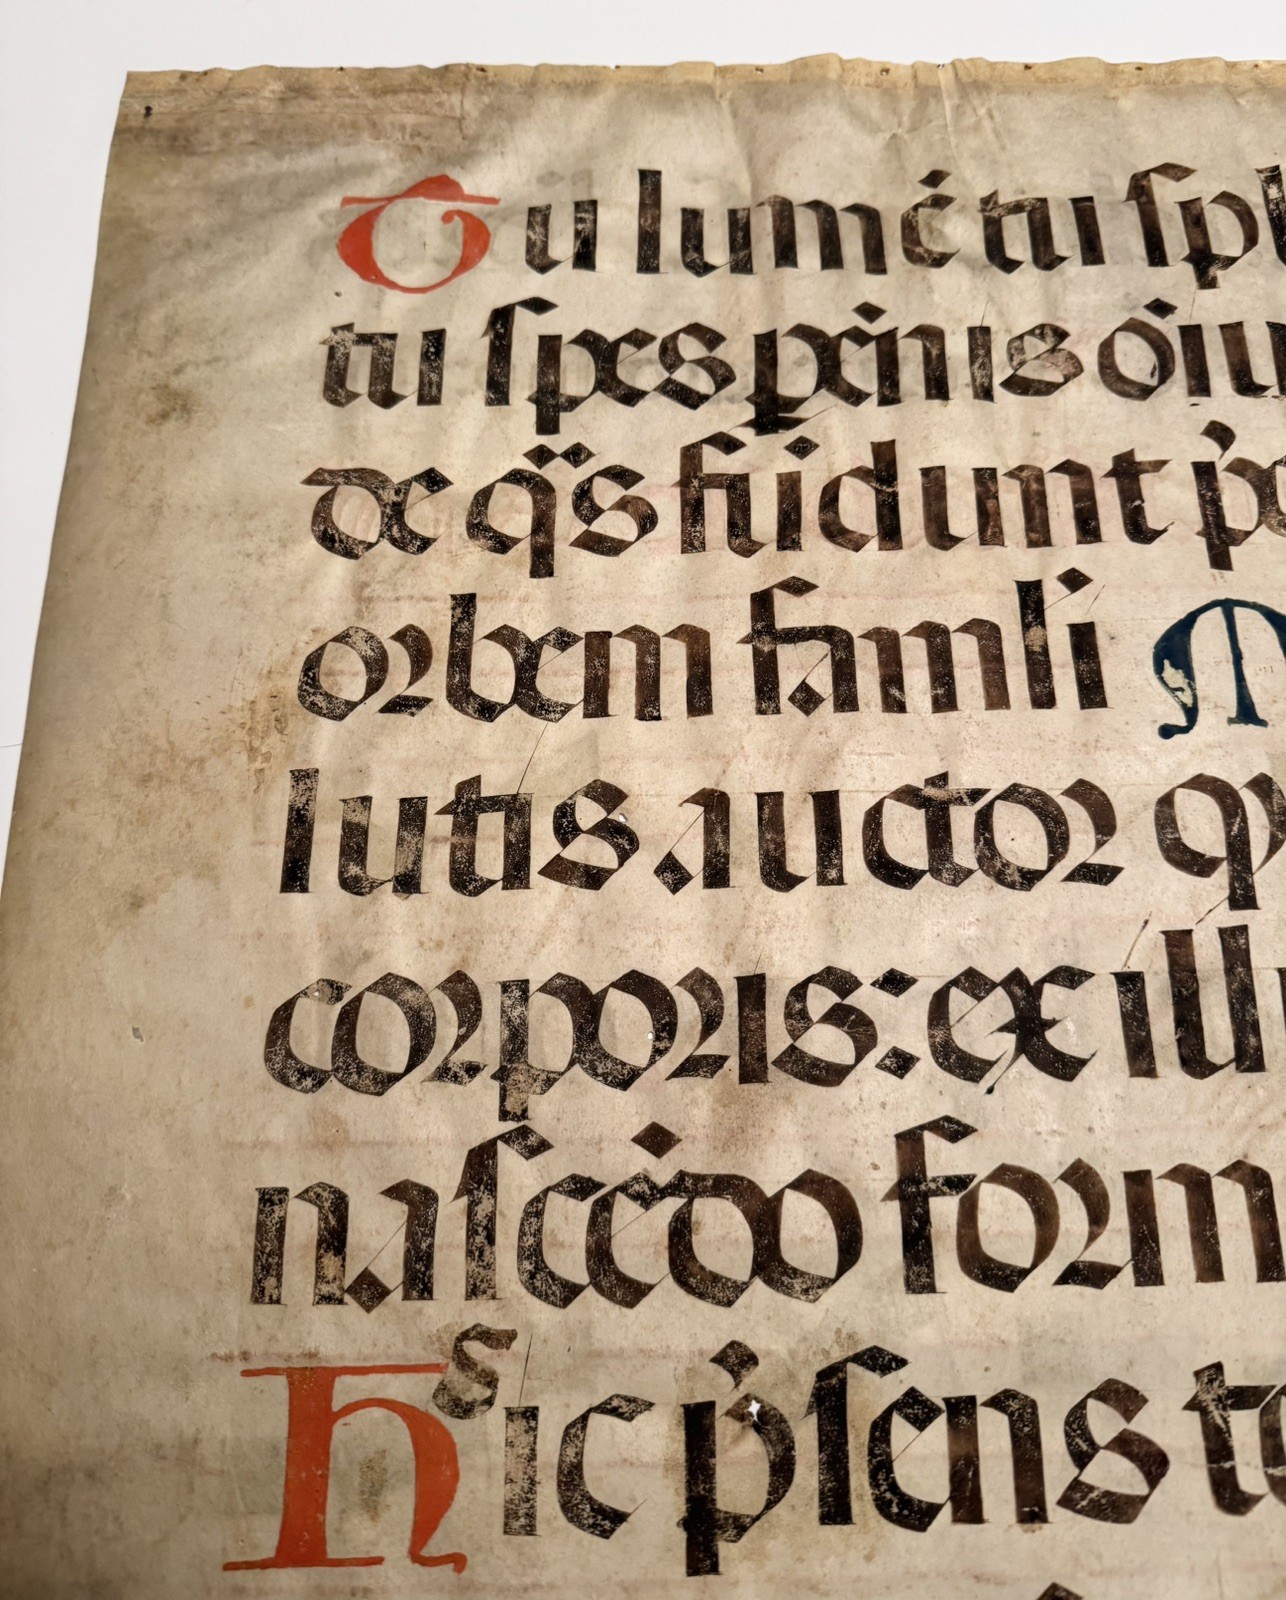 Tu lumē tu spl
tu spes pēnis oīu
de q̈s fūdunt p̄c
orbem famli M
lutis auctor q
corporis: ex ill
nascēdo form
Hsic p̄sens te